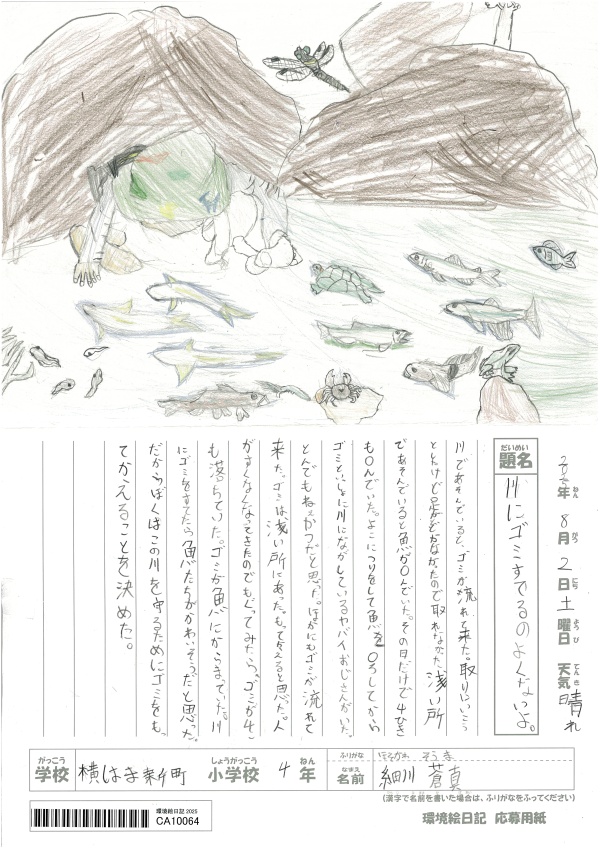 2025年 8月 2日 土曜日 天気 晴れ
ねん がつ にち ようび てんき
だいめい
題名
川にゴミすてるのよくないよ。
川であそんでいると、ゴミが流れて来た。取りにいこう
とたけど足がとどかなかたので取れなかた。浅い所
であそんでいると魚が〇んでいた。その日だけで4ひき
も〇んでいた。よこにつりをして魚を〇ろしてから
ゴミといっしょに川にながしているヤバイおじさんがいた。
とんでもねぇかつだと思た。ほかにもゴミが流れて
来た。ゴミは浅い所にあった。もって帰えると思った。人
がすくなくなってきたのでもぐってみたら、ゴミが4こ
も落ちていた。ゴミが魚にからまっていた。川
にゴミをすてたら魚たちがかわいそうだと思った。
だからぼくはこの川を守るためにゴミをも
てかえることを決めた。
がっこう しょうがっこう ねん
学校 横はま 町 小学校 4年
ふりがな ほそかわ そうま
なまえ
名前 細川 蒼真
(漢字で名前を書いた場合は、ふりがなをふってください)
環境絵日記 2025
CA10064
環境絵日記 応募用紙